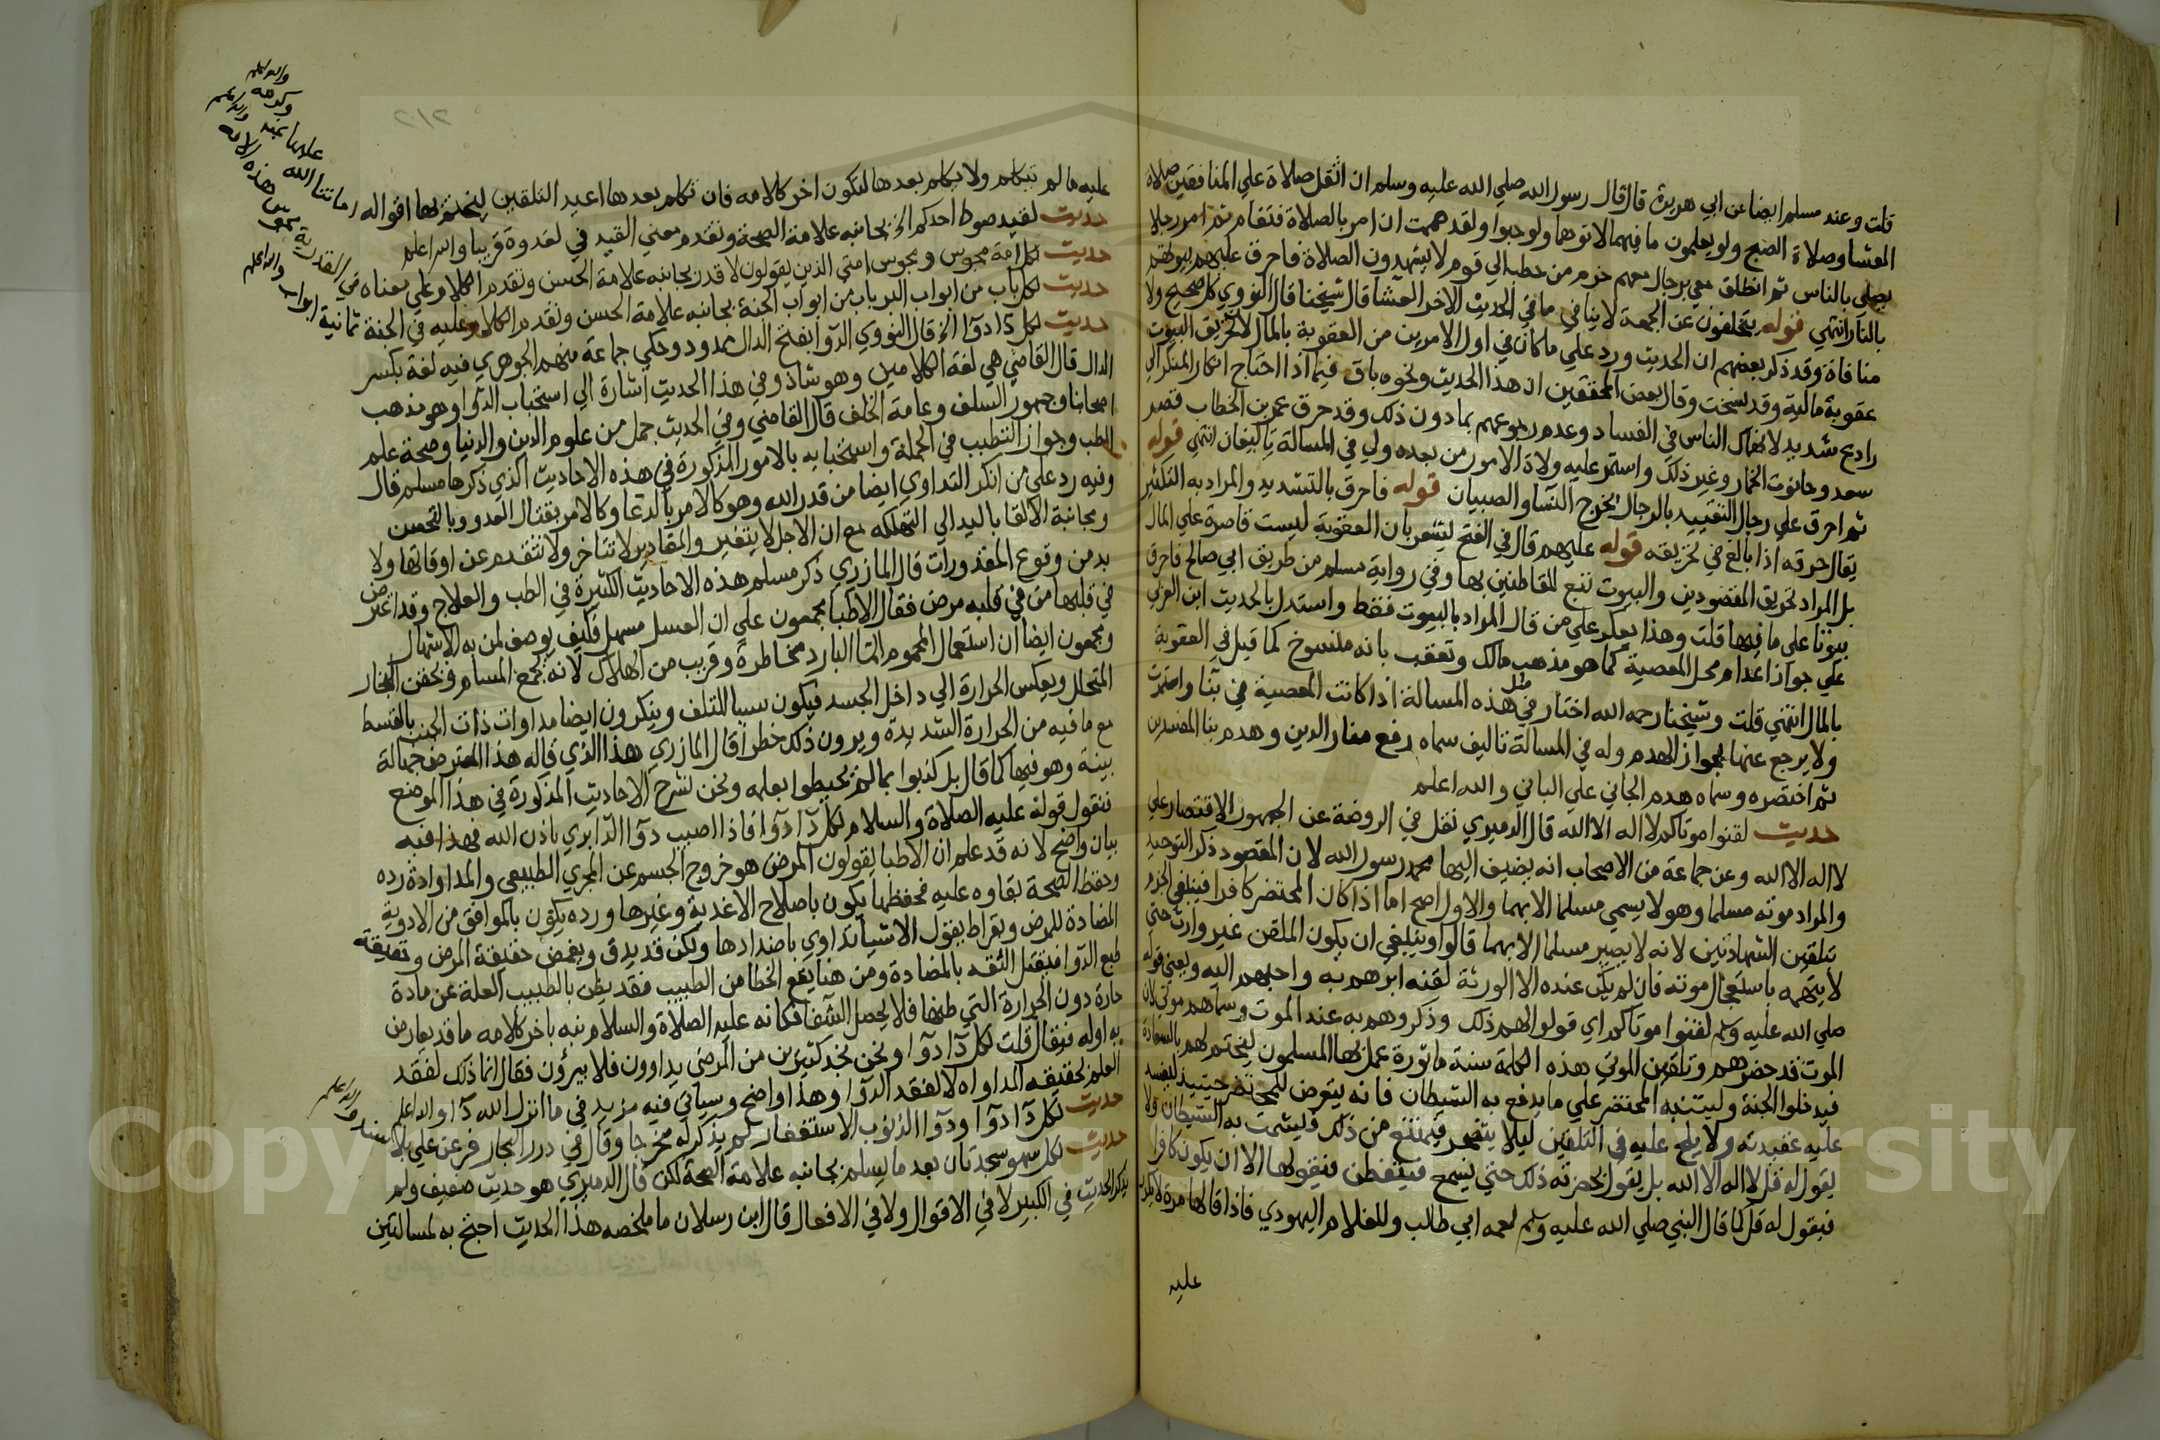 قلت وعند مسلم ايضا عن ابي هريرة قال قال رسول الله صلي الله عليه وسلم ان اثقل صلاة علي المنافقين صلاة
العشا وصلاة الصبح ولو يعلمون ما فيهما لاتوهما ولو حبوا ولقد هممت ان امر بالصلاة فتقام ثم امر رجلا
يصلي بالناس ثم انطلق معي برجال معهم حزم من حطب الي قوم لا يشهدون الصلاة فاحرق عليهم بيوتهم
بالنار انتهي قوله يتخلفون عن الجمعة لا ينافي ما في الحديث الاخر العشا قال شيخنا قال النووي كل صحيح ولا
منافاة وقد ذكر بعضهم ان الحديث ورد علي ما كان في اول الامر من العقوبة بالمال لا تحريق البيوت
عقوبة مالية وقد نسخت وقال بعض المحققين ان هذا الحديث ونحوه باق فيما اذا احتاج انكار المنكر الي
رادع شديد لانهماك الناس في الفساد وعدم رجوعهم بما دون ذلك وقد حرق عمر بن الخطاب قصر
سعد وحانوت الخمار وغير ذلك واستمر عليه ولاة الامور من بعده ولي في المسالة تاليفان انتهي قوله
ثم احرق علي رجال التقييد بالرجال يخرج النسا والصبيان قوله فاحرق بالتشديد والمراد به التكثير
يقال حرقه اذا بالغ في تحريقه قوله عليهم قال في الفتح يشعر بان العقوبة ليست قاصرة علي المال
بل المراد تحريق المقصودين والبيوت تبع للقاطنين بها وفي رواية مسلم من طريق ابي صالح فاحرق
بيوتا علي ما فيها قلت وهذا يعكر علي من قال المراد بالبيوت فقط واستدل بالحديث ابن العربي
علي جواز اعدام محل المعصية كما هو مذهب مالك وتعقب بانه منسوخ كما قيل في العقوبة
بالمال انتهي قلت وشيخنا رحمه الله اختار في مثل هذه المسالة اذا كانت المعصية في بنا واستمرت
ولا يرجع عنها بجواز الهدم وله في المسالة تاليف سماه رفع منار الدين وهدم بنا المفسدين
ثم اختصره وسماه هدم الجاني علي الباني والله اعلم
حديث لقنوا موتاكم لا اله الا الله قال الدميري نقل في الروضة عن الجمهور الاقتصار علي
لا اله الا الله وعن جماعة من الاصحاب انه يضيف اليها محمد رسول الله لان المقصود ذكر التوحيد
والمراد موته مسلما وهو لا يسمي مسلما الا بهما والاول اصح اما اذا كان المحتضر كافرا فينبغي الجزم
بتلقين الشهادتين لانه لا يصير مسلما الا بهما قالوا وينبغي ان يكون الملقن غير وارث حتي
لا يتهمه باستعجال موته فان لم يكن عنده الا الورثة لقنه ابرهم به واحبهم اليه ويعني قوله
صلي الله عليه وسلم لقنوا موتاكم اي قولوا لهم ذلك وذكروهم به عند الموت وسماهم موتي لان
الموت قد حضرهم وتلقين الموتي هذه الكلمة سنة ماثورة عمل بها المسلمون ليختم لهم بالسعادة
فيدخلوا الجنة وليتنبه المحتضر علي ما يدفع به الشيطان فانه يتعرض للمحتضر حينيذ ليفسد
عليه عقيدته ولا يلح عليه في التلقين ليلا يتضجر فيمتنع من ذلك فيشمت به الشيطان ولا
يقول له قل لا اله الا الله بل يقول بحضرته ذلك حتي يسمع فيتفطن فيقولها الا ان يكون كافرا
فيقول له قل كما قال النبي صلي الله عليه وسلم لعمه ابي طالب وللغلام اليهودي فاذا قالها مرة لا يكرر
عليه
عليه ما لم يتكلم ولا يكلم بعدها لتكون اخر كلامه فان تكلم بعدها اعيد التلقين ليختم بها اقواله
حديث لقيد صوط احدكم الخ بجانبه علامة الصحة وتقدم معني القيد في لغدوة قريبا والله اعلم
حديث لكل امة مجوس ومجوس امتي الذين يقولون لا قدر بجانبه علامة الحسن وتقدم الكلام علي معناه في القدرية
حديث لكل باب من ابواب البر باب من ابواب الجنة بجانبه علامة الحسن وتقدم الكلام عليه في الجنة ثمانية ابواب والله اعلم
حديث لكل دا دوا الخ قال النووي الدوا بفتح الدال ممدود وحكي جماعة منهم الجوهري فيه لغة بكسر
الدال قال القاضي هي لغة الكلابيين وهو شاذ وفي هذا الحديث اشارة الي استحباب الدوا وهو مذهب
اصحابنا وجمهور السلف وعامة الخلف قال القاضي وفي الحديث جمل من علوم الدين والدنيا وصحة علم
الطب وجواز التطبب في الجملة واستحبابه بالامور المذكورة في هذه الاحاديث الذي ذكرها مسلم قال
وفيه رد علي من انكر التداوي ايضا من قدر الله وهو كالامر بالدعا وكالامر بقتال العدو وبالتحصن
ومجانبة الالقا باليد الي التهلكه مع ان الاجل لا يتغير والمقادير لا تتاخر ولا تتقدم عن اوقاتها ولا
بد من وقوع المقدورات قال المازري ذكر مسلم هذه الاحاديث الكثيرة في الطب والعلاج وقد اعترض
في قلبها من في قلبه مرض فقال الاطبا مجمعون علي ان العسل مسهل فكيف يوصف لمن به الاسهال
ومجمعون ايضا ان استعمال المحموم الما البارد مخاطرة وقريب من الهلاك لانه يجمع المسام ويحقن البخار
المتحلل ويعكس الحرارة الي داخل الجسد فيكون سببا للتلف وينكرون ايضا مداوات ذات الجنب بالقسط
مع ما فيه من الحرارة الشديدة ويرون ذلك خطرا قال المازري هذا الذي قاله هذا المعترض جهالة
بينة وهو فيها كما قال بل كذبوا بما لم يحيطوا بعلمه ونحن نشرح الاحاديث المذكورة في هذا الموضع
فنقول قوله عليه الصلاة والسلام لكل دا دوا فاذا اصيب دوا الدا بري باذن الله فهذا فيه
بيان واضح لانه قد علم ان الاطبا يقولون المرض هو خروج الجسم عن المجري الطبيعي والمداواة رده
وحفظ الصحة بقاوه عليه فحفظها يكون باصلاح الاغدية وغيرها ورده يكون بالموافق من الادوية
المضادة للمرض وبقراط يقول الاشيا تداوي باضدادها ولكن قد يدق ويغمض حقيقة المرض وحقيقة
طبع الدوا فيقل الثقه بالمضادة ومن هنا يقع الخطا من الطبيب فقد يظن بالطبيب العلة عن مادة
حارة دون الحرارة التي ظنها فلا يحصل الشفا فكانه عليه الصلاة والسلام نبه باخر كلامه ما قد يعارض
به اوله فيقال قلت لكل دا دوا ونحن نجد كثيرين من المرضي يداوون فلا يبرؤن فقال انما ذلك لفقد
العلم بحقيقه المداواه لا لفقد الدوا وهذا واضح وسياتي فيه مزيد في ما انزل الله دا والله اعلم
حديث لكل دا دوا ودوا الذنوب الاستغفار لم يذكر له مخرجا وقال في درر البحار فر عن علي بلا سند والله اعلم
حديث لكل سهو سجدتان بعد ما يسلم بجانبه علامة الصحة لكن قال الدميري هو حديث ضعيف ولم
يذكر الحديث في الكبير لا في الاقوال ولا في الافعال قال ابن رسلان ما ملخصه هذا الحديث احتج به لمسالتين